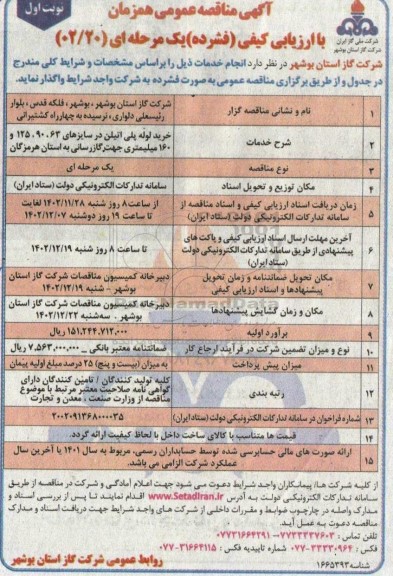 نوبت اول
آگهی مناقصه عمومی همزمان
با ارزیابی کیفی (فشرده) یک مرحله ای (۰۲/۲۰)
شرکت ملی گاز ایران
شرکت گاز استان بوشهر
شرکت گاز استان بوشهر در نظر دارد انجام خدمات ذیل را براساس مشخصات و شرایط کلی مندرج
در جدول و از طریق برگزاری مناقصه عمومی به صورت فشرده به شرکت واجد شرایط واگذار نماید.
۱ نام و نشانی مناقصه گزار شرکت گاز استان بوشهر، بوشهر، فلکه قدس، بلوار
رئیسعلی دلواری، نرسیده به چهارراه کشتیرانی
۲ شرح خدمات خرید لوله پلی اتیلن در سایزهای ۶۳، ۹۰، ۱۲۵ و
۱۶۰ میلیمتری جهت گازرسانی به استان هرمزگان
۳ نوع مناقصه یک مرحله ای
۴ مکان توزیع و تحویل اسناد سامانه تدارکات الکترونیکی دولت (ستاد ایران)
۵ زمان دریافت اسناد ارزیابی کیفی و اسناد مناقصه از
سامانه تدارکات الکترونیکی دولت (ستاد ایران)
از ساعت ۸ روز شنبه ۱۴۰۲/۱۱/۲۸ لغایت
تا ساعت ۱۹ روز دوشنبه ۱۴۰۲/۱۲/۰۷
۶ آخرین مهلت ارسال اسناد ارزیابی کیفی و پاکت های
پیشنهادی از طریق سامانه تدارکات الکترونیکی دولت
(ستاد ایران)
تا ساعت ۸ روز شنبه ۱۴۰۲/۱۲/۱۹
۷ مکان تحویل ضمانتنامه و زمان تحویل
پیشنهادها و اسناد ارزیابی کیفی
دبیرخانه کمیسیون مناقصات شرکت گاز استان
بوشهر - شنبه ۱۴۰۲/۱۲/۱۹
۸ مکان و زمان گشایش پیشنهادها دبیرخانه کمیسیون مناقصات شرکت گاز استان
بوشهر - سه‌شنبه ۱۴۰۲/۱۲/۲۲
۹ برآورد اولیه ۱۵۱,۲۴۴,۷۱۲,۰۰۰ ریال
۱۰ نوع و میزان تضمین شرکت در فرآیند ارجاع کار ضمانتنامه معتبر بانکی - ۷,۵۶۳,۰۰۰,۰۰۰ ریال
۱۱ میزان پیش پرداخت به میزان (بیست و پنج) ۲۵ درصد مبلغ اولیه پیمان
۱۲ رتبه بندی کلیه تولید کنندگان / تامین کنندگان دارای
گواهی نامه صلاحیت معتبر مرتبط با موضوع
مناقصه از وزارت صنعت، معدن و تجارت
۱۳ شماره فراخوان در سامانه تدارکات الکترونیکی دولت (ستاد ایران) ۲۰۰۲۰۹۱۳۶۸۰۰۰۰۳۵
۱۴ قیمت ها متناسب با کالای ساخت داخل با لحاظ کیفیت ارائه گردد.
۱۵ ارائه صورت های مالی حسابرسی شده توسط حسابداران رسمی، مربوط به سال ۱۴۰۱ یا آخرین سال
عملکرد شرکت الزامی می باشد.
از کلیه شرکت ها/ پیمانکاران واجد شرایط دعوت می شود جهت اعلام آمادگی و شرکت در مناقصه از طریق
سامانه تدارکات الکترونیکی دولت به آدرس www.Setadiran.ir اقدام نمایند تا پس از بررسی اسناد و
مدارک واصله در چارچوب ضوابط و مقررات داخلی از شرکت های واجد شرایط جهت دریافت اسناد و مدارک
مناقصه دعوت به عمل آید.
تلفن تماس : ۰۷۷۳۳۴۴۷۶۰۳ - ۰۷۷۳۱۶۶۴۲۹۱
فکس : ۳۳۳۳۰۹۶۴-۰۷۷ شماره تاییدیه فکس : ۳۱۶۶۴۱۱۵-۰۷۷
شناسه ۱۶۶۵۳۹۳
روابط عمومی شرکت گاز استان بوشهر